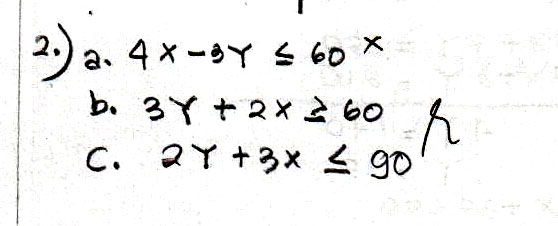 2.) a. 4x - 3Y ≤ 60 x
b. 3Y + 2x ≥ 60
C. 2Y + 3x ≤ 90